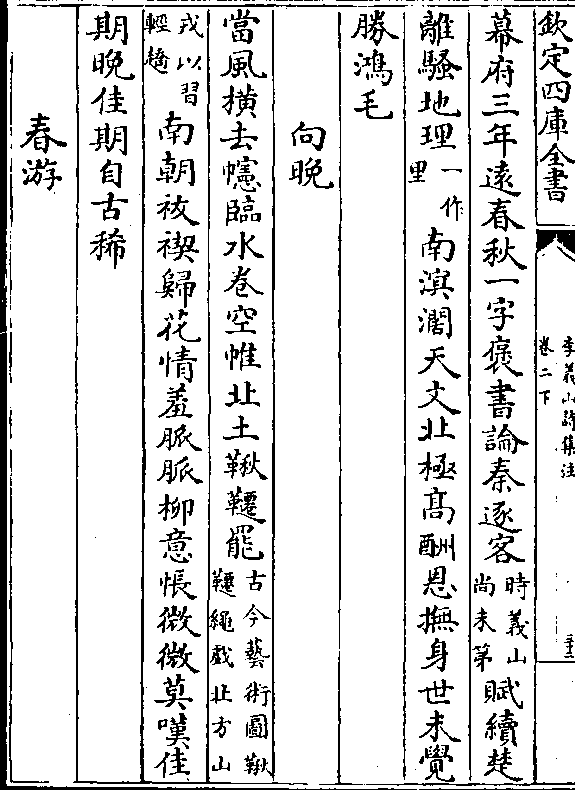 欽定四庫全書
李義山詩集注
卷二下
三十三
幕府三年遠春秋一字褒書論秦逐客時義山尚未第賦續楚
離騷地理一作里南溟濶天文北極髙酬恩撫身世未覺
勝鴻毛
向晚
當風横去幰臨水卷空帷北土鞦韆罷古今藝術圖鞦韆繩戲北方山
戎以習輕趫南朝祓禊歸花情羞脈脈柳意悵微微莫嘆佳
期晚佳期自古稀
春游